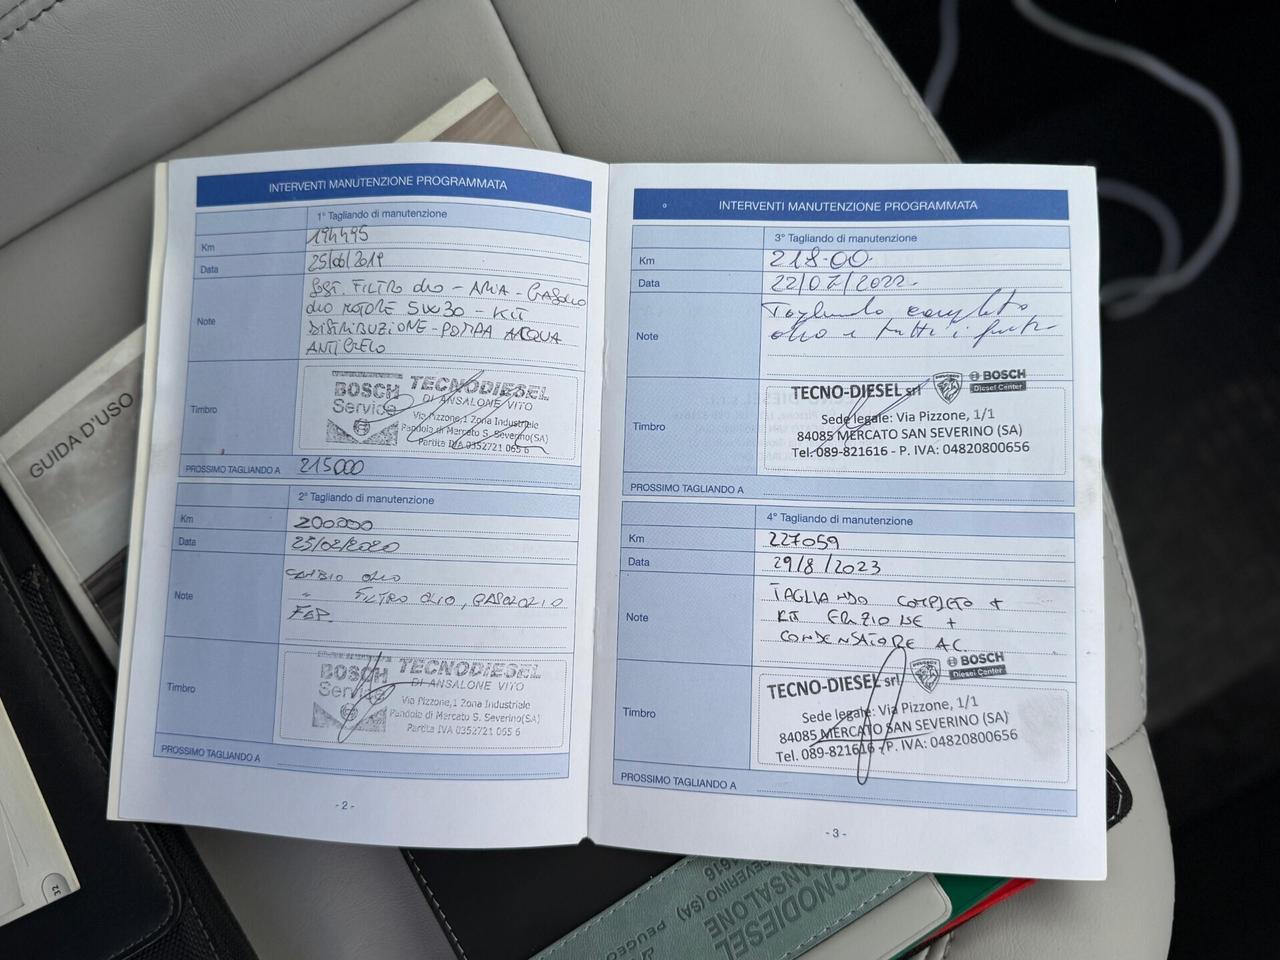 INTERVENTI MANUTENZIONE PROGRAMMATA
1° Tagliando di manutenzione
Km 194495
Data 25/06/2019
Note SOST. FILTRO OLIO - ARIA - GASOLIO
OLIO MOTORE 5W30 - KIT
DISTRIBUZIONE - POMPA ACQUA
ANTIGELO
Timbro
BOSCH
Service
TECNODIESEL
DI ANSALONE VITO
Via Pizzone,1 Zona Industriale
Pandola di Mercato S. Severino(SA)
Partita IVA 0352721 065 6
PROSSIMO TAGLIANDO A 215000
2° Tagliando di manutenzione
Km 200000
Data 25/02/2020
Note CAMBIO OLIO
" FILTRO OLIO, GASOLIO
Timbro
BOSCH
Service
TECNODIESEL
DI ANSALONE VITO
Via Pizzone,1 Zona Industriale
Pandola di Mercato S. Severino(SA)
Partita IVA 0352721 065 6
PROSSIMO TAGLIANDO A
- 2 -
INTERVENTI MANUTENZIONE PROGRAMMATA
3° Tagliando di manutenzione
Km 218.00
Data 22/07/2022
Note Tagliando completo
olio e tutti i filtri
Timbro
TECNO-DIESEL srl
PEUGEOT
BOSCH
Diesel Center
Sede legale: Via Pizzone, 1/1
84085 MERCATO SAN SEVERINO (SA)
Tel. 089-821616 - P. IVA: 04820800656
PROSSIMO TAGLIANDO A
4° Tagliando di manutenzione
Km 227059
Data 29/8/2023
Note TAGLIANDO COMPLETO +
KIT +
CONDENSATORE A.C.
Timbro
TECNO-DIESEL srl
PEUGEOT
BOSCH
Diesel Center
Sede legale: Via Pizzone, 1/1
84085 MERCATO SAN SEVERINO (SA)
Tel. 089-821616 - P. IVA: 04820800656
PROSSIMO TAGLIANDO A
- 3 -
GUIDA D'USO
32
TECNODIESEL
ANSALONE
SEVERINO (SA)
1616
PEUGEO